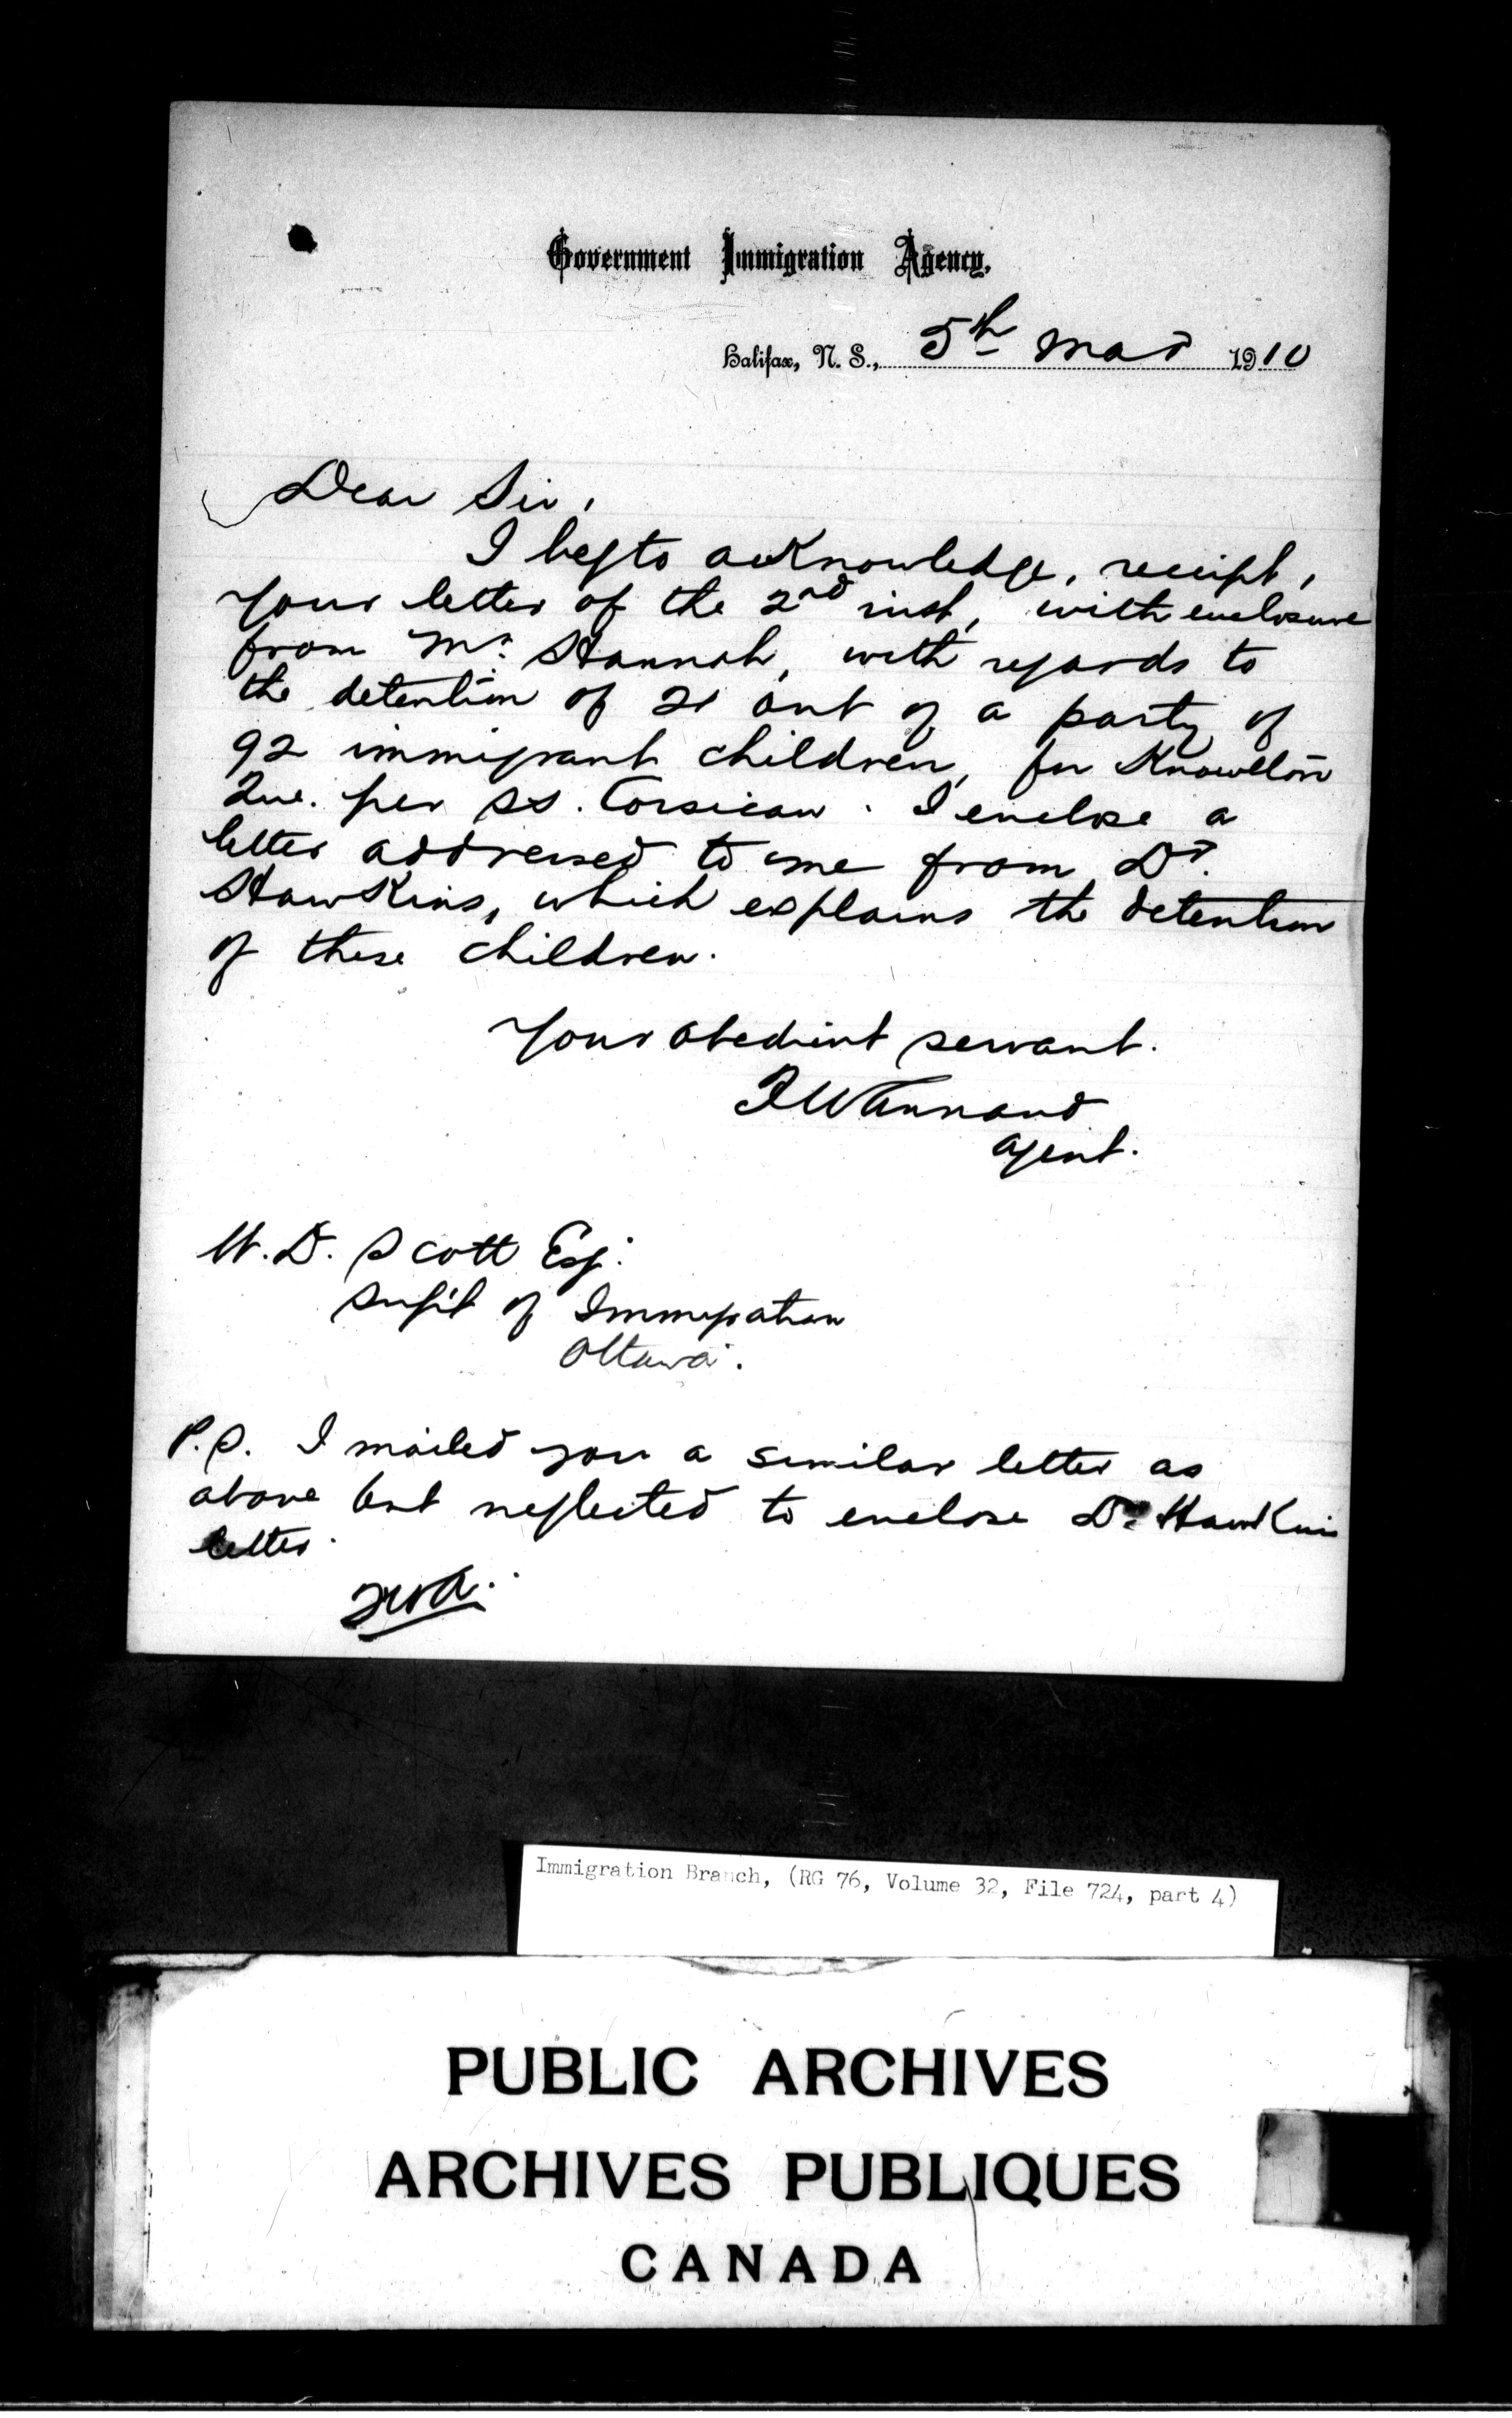 Government Immigration Agency.
Halifax, N. S., 5th Mar 1910
Dear Sir,
I beg to acknowledge, receipt,
your letter of the 2nd inst, with enclosure
from Mr. Hannah, with regards to
the detention of 21 out of a party of
92 immigrant children, for Knowlton
Que. per SS. Corsican. I enclose a
letter addressed to me from Dr.
Hawkins, which explains the detention
of these children.
Your obedient servant.
FWAnnand
Agent.
W. D. Scott Esq.
Supt of Immigration
Ottawa.
P.S. I mailed you a similar letter as
above but neglected to enclose Dr Hawkins
letter.
FWA.
Immigration Branch, (RG 76, Volume 32, File 724, part 4)
PUBLIC ARCHIVES
ARCHIVES PUBLIQUES
CANADA